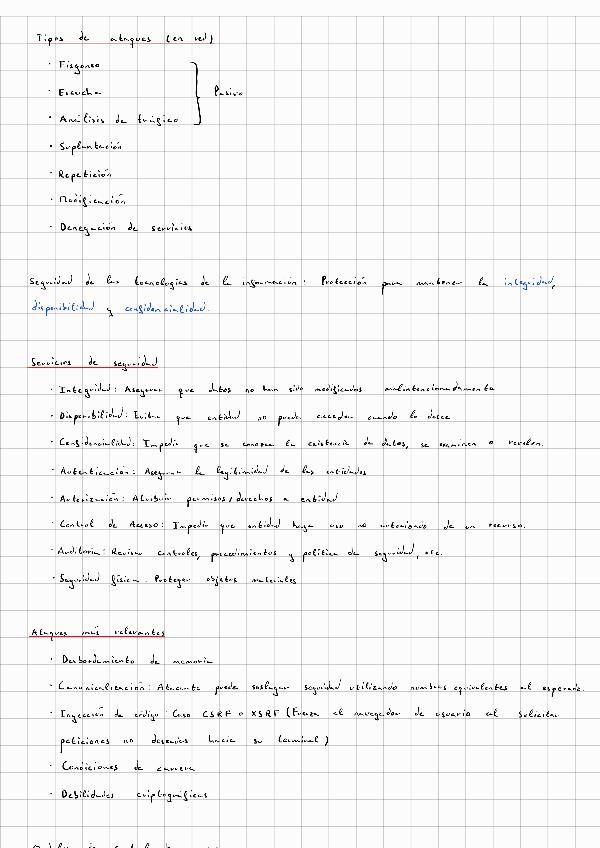 Tipos de ataques (en red)
· Fisgoneo
· Escucha
Pasivo
· Análisis de tráfico
· Suplantación
· Repetición
· Modificación
· Denegación de servicios
Seguridad de las tecnologías de la información: Protección para mantener la integridad,
disponibilidad y confidencialidad.
Servicios de seguridad
· Integridad: Asegurar que datos no han sido modificados malintencionadamente
· Disponibilidad: Evitar que entidad no pueda acceder cuando lo desee
· Confidencialidad: Impedir que se conozca la existencia de datos, se examinen o revelen.
· Autenticación: Asegurar la legitimidad de las entidades
· Autorización: Atribuir permisos/derechos a entidad
· Control de Acceso: Impedir que entidad haga uso no autorizado de un recurso.
· Auditoría: Revisar controles, procedimientos y política de seguridad, etc.
· Seguridad física: Proteger objetos materiales
Ataques más relevantes
· Desbordamiento de memoria
· Canonicalización: Atacante puede soslayar seguridad utilizando nombres equivalentes al esperado.
· Inyección de código: Caso CSRF o XSRF (Fuerza el navegador de usuario al solicitar
peticiones no deseadas hacia su terminal)
· Condiciones de carrera
· Debilidades criptográficas